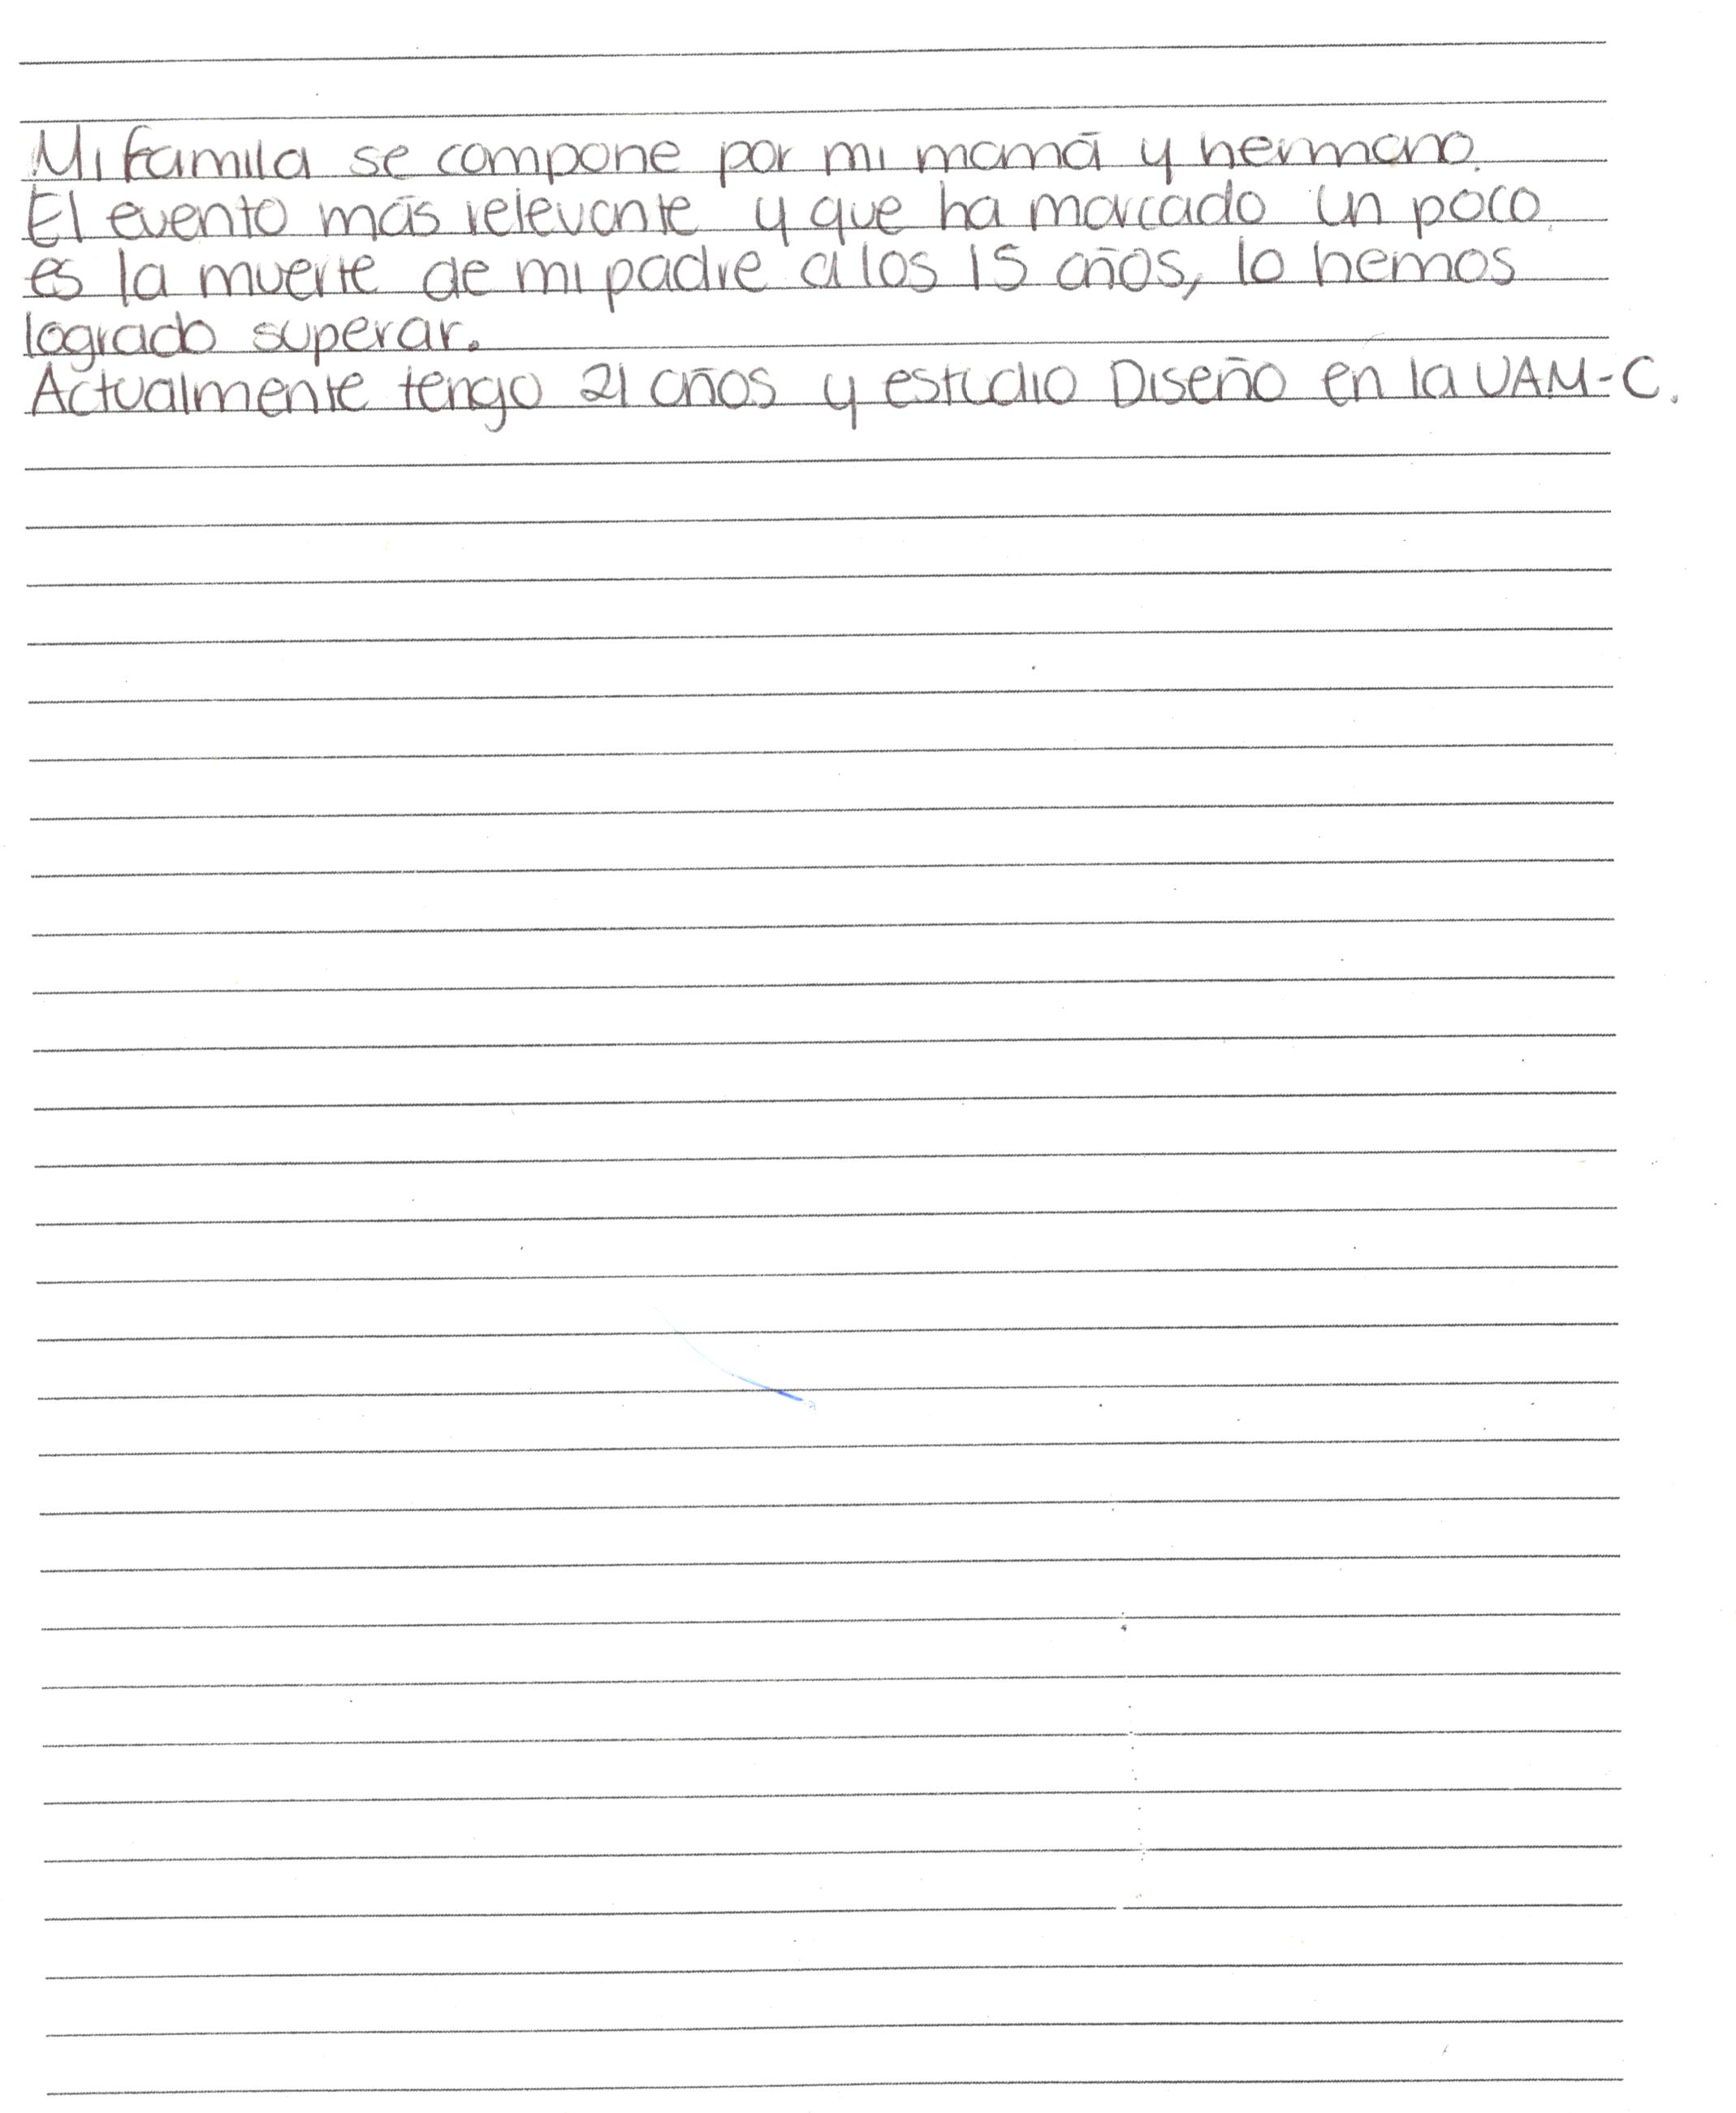 Mi familia se compone por mi mamá y hermano.
El evento más relevante y que ha marcado un poco
es la muerte de mi padre a los 15 años, lo hemos
logrado superar.
Actualmente tengo 21 años y estudio Diseño en la UAM-C.